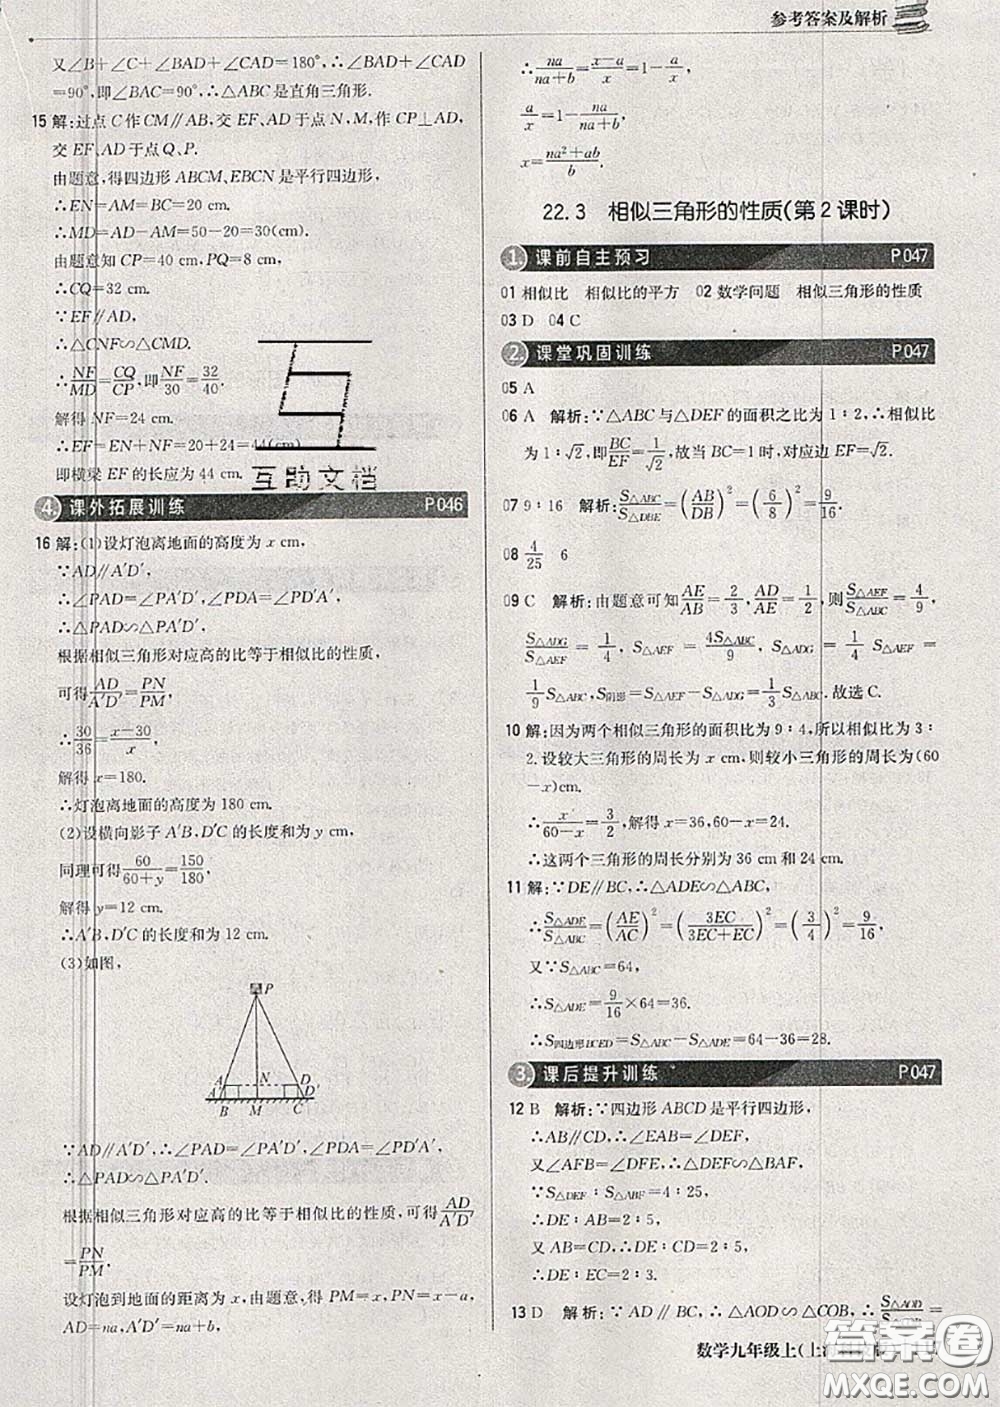 参考答案及解析
又∠B+∠C+∠BAD+∠CAD=180°,∴∠BAD+∠CAD
=90°,即∠BAC=90°,∴△ABC是直角三角形.
15 解:过点C作CM∥AB,交EF、AD于点N、M,作CP⊥AD,
交EF、AD于点Q、P.
由题意,得四边形ABCM、EBCN是平行四边形,
∴EN=AM=BC=20(cm).
∴MD=AD-AM=50-20=30(cm).
由题意知CP=40 cm,PQ=8 cm,
∴CQ=32 cm.
∵EF∥AD,
∴△CNF∽△CMD.
∴NF/MD=CQ/CP,即NF/30=32/40.
解得NF=24 cm.
∴EF=EN+NF=20+24=44(cm)
即横梁EF的长应为44 cm.
互助文档
4. 课外拓展训练 P046
16 解:(1)设灯泡离地面的高度为x cm,
∵AD∥A′D′,
∴∠PAD=∠PA′D′,∠PDA=∠PD′A′,
∴△PAD∽△PA′D′.
根据相似三角形对应高的比等于相似比的性质,
可得AD/A′D′=PN/PM,
∴30/36=(x-30)/x,
解得x=180.
∴灯泡离地面的高度为180 cm.
(2)设横向影子A′B、D′C的长度和为y cm,
同理可得60/(60+y)=150/180,
解得y=12 cm.
∴A′B、D′C的长度和为12 cm.
(3)如图,
P
A N D
A′ D′
B M C
∵AD∥A′D′,∴∠PAD=∠PA′D′,∠PDA=∠PD′A′,
∴△PAD∽△PA′D′.
根据相似三角形对应高的比等于相似比的性质,可得AD/A′D′
=PN/PM,
设灯泡到地面的距离为x,由题意,得PM=x,PN=x-a,
AD=na,A′D′=na+b,
∴na/(na+b)=(x-a)/x=1-a/x,
a/x=1-na/(na+b),
x=(na²+ab)/b.
22.3 相似三角形的性质(第2课时)
1. 课前自主预习 P047
01 相似比 相似比的平方 02 数学问题 相似三角形的性质
03 D 04 C
2. 课堂巩固训练 P047
05 A
06 A 解析:∵△ABC与△DEF的面积之比为1∶2,∴相似比
为1∶√2,即BC/EF=1/√2,故当BC=1时,对应边EF=√2.
07 9∶16 解析:S△ABC/S△DBE=(AB/DB)²=(6/8)²=9/16.
08 4/25 6
09 C 解析:由题意可知AE/AB=2/3,AD/AE=1/2,则S△AEF/S△ABC=4/9,
S△ADG/S△AEF=1/4,S△AEF=4S△ABC/9,S△ADG=1/4S△AEF=
1/9S△ABC,S阴影=S△AEF-S△ADG=1/3S△ABC.故选C.
10 解:因为两个相似三角形的面积比为9∶4,所以相似比为3∶
2.设较大三角形的周长为x cm,则较小三角形的周长为(60
-x)cm.
∴x/(60-x)=3/2,解得x=36,60-x=24.
∴这两个三角形的周长分别为36 cm和24 cm.
11 解:∵DE∥BC,∴△ADE∽△ABC,
∴S△ADE/S△ABC=(AE/AC)²=(3EC/(3EC+EC))²=(3/4)²=9/16,
又∵S△ABC=64,
∴S△ADE=9/16×64=36.
∴S四边形BCED=S△ABC-S△ADE=64-36=28.
3. 课后提升训练 P047
12 B 解析:∵四边形ABCD是平行四边形,
∴AB∥CD,∴∠EAB=∠DEF,
又∠AFB=∠DFE,∴△DEF∽△BAF.
∵S△DEF∶S△BAF=4∶25,
∴DE∶AB=2∶5,
又AB=CD,∴DE∶CD=2∶5.
∴DE∶EC=2∶3.
13 D 解析:∵AD∥BC,∴△AOD∽△COB,∴S△AOD/S△COB=
数学九年级上(上
答案圈
MXQE.COM